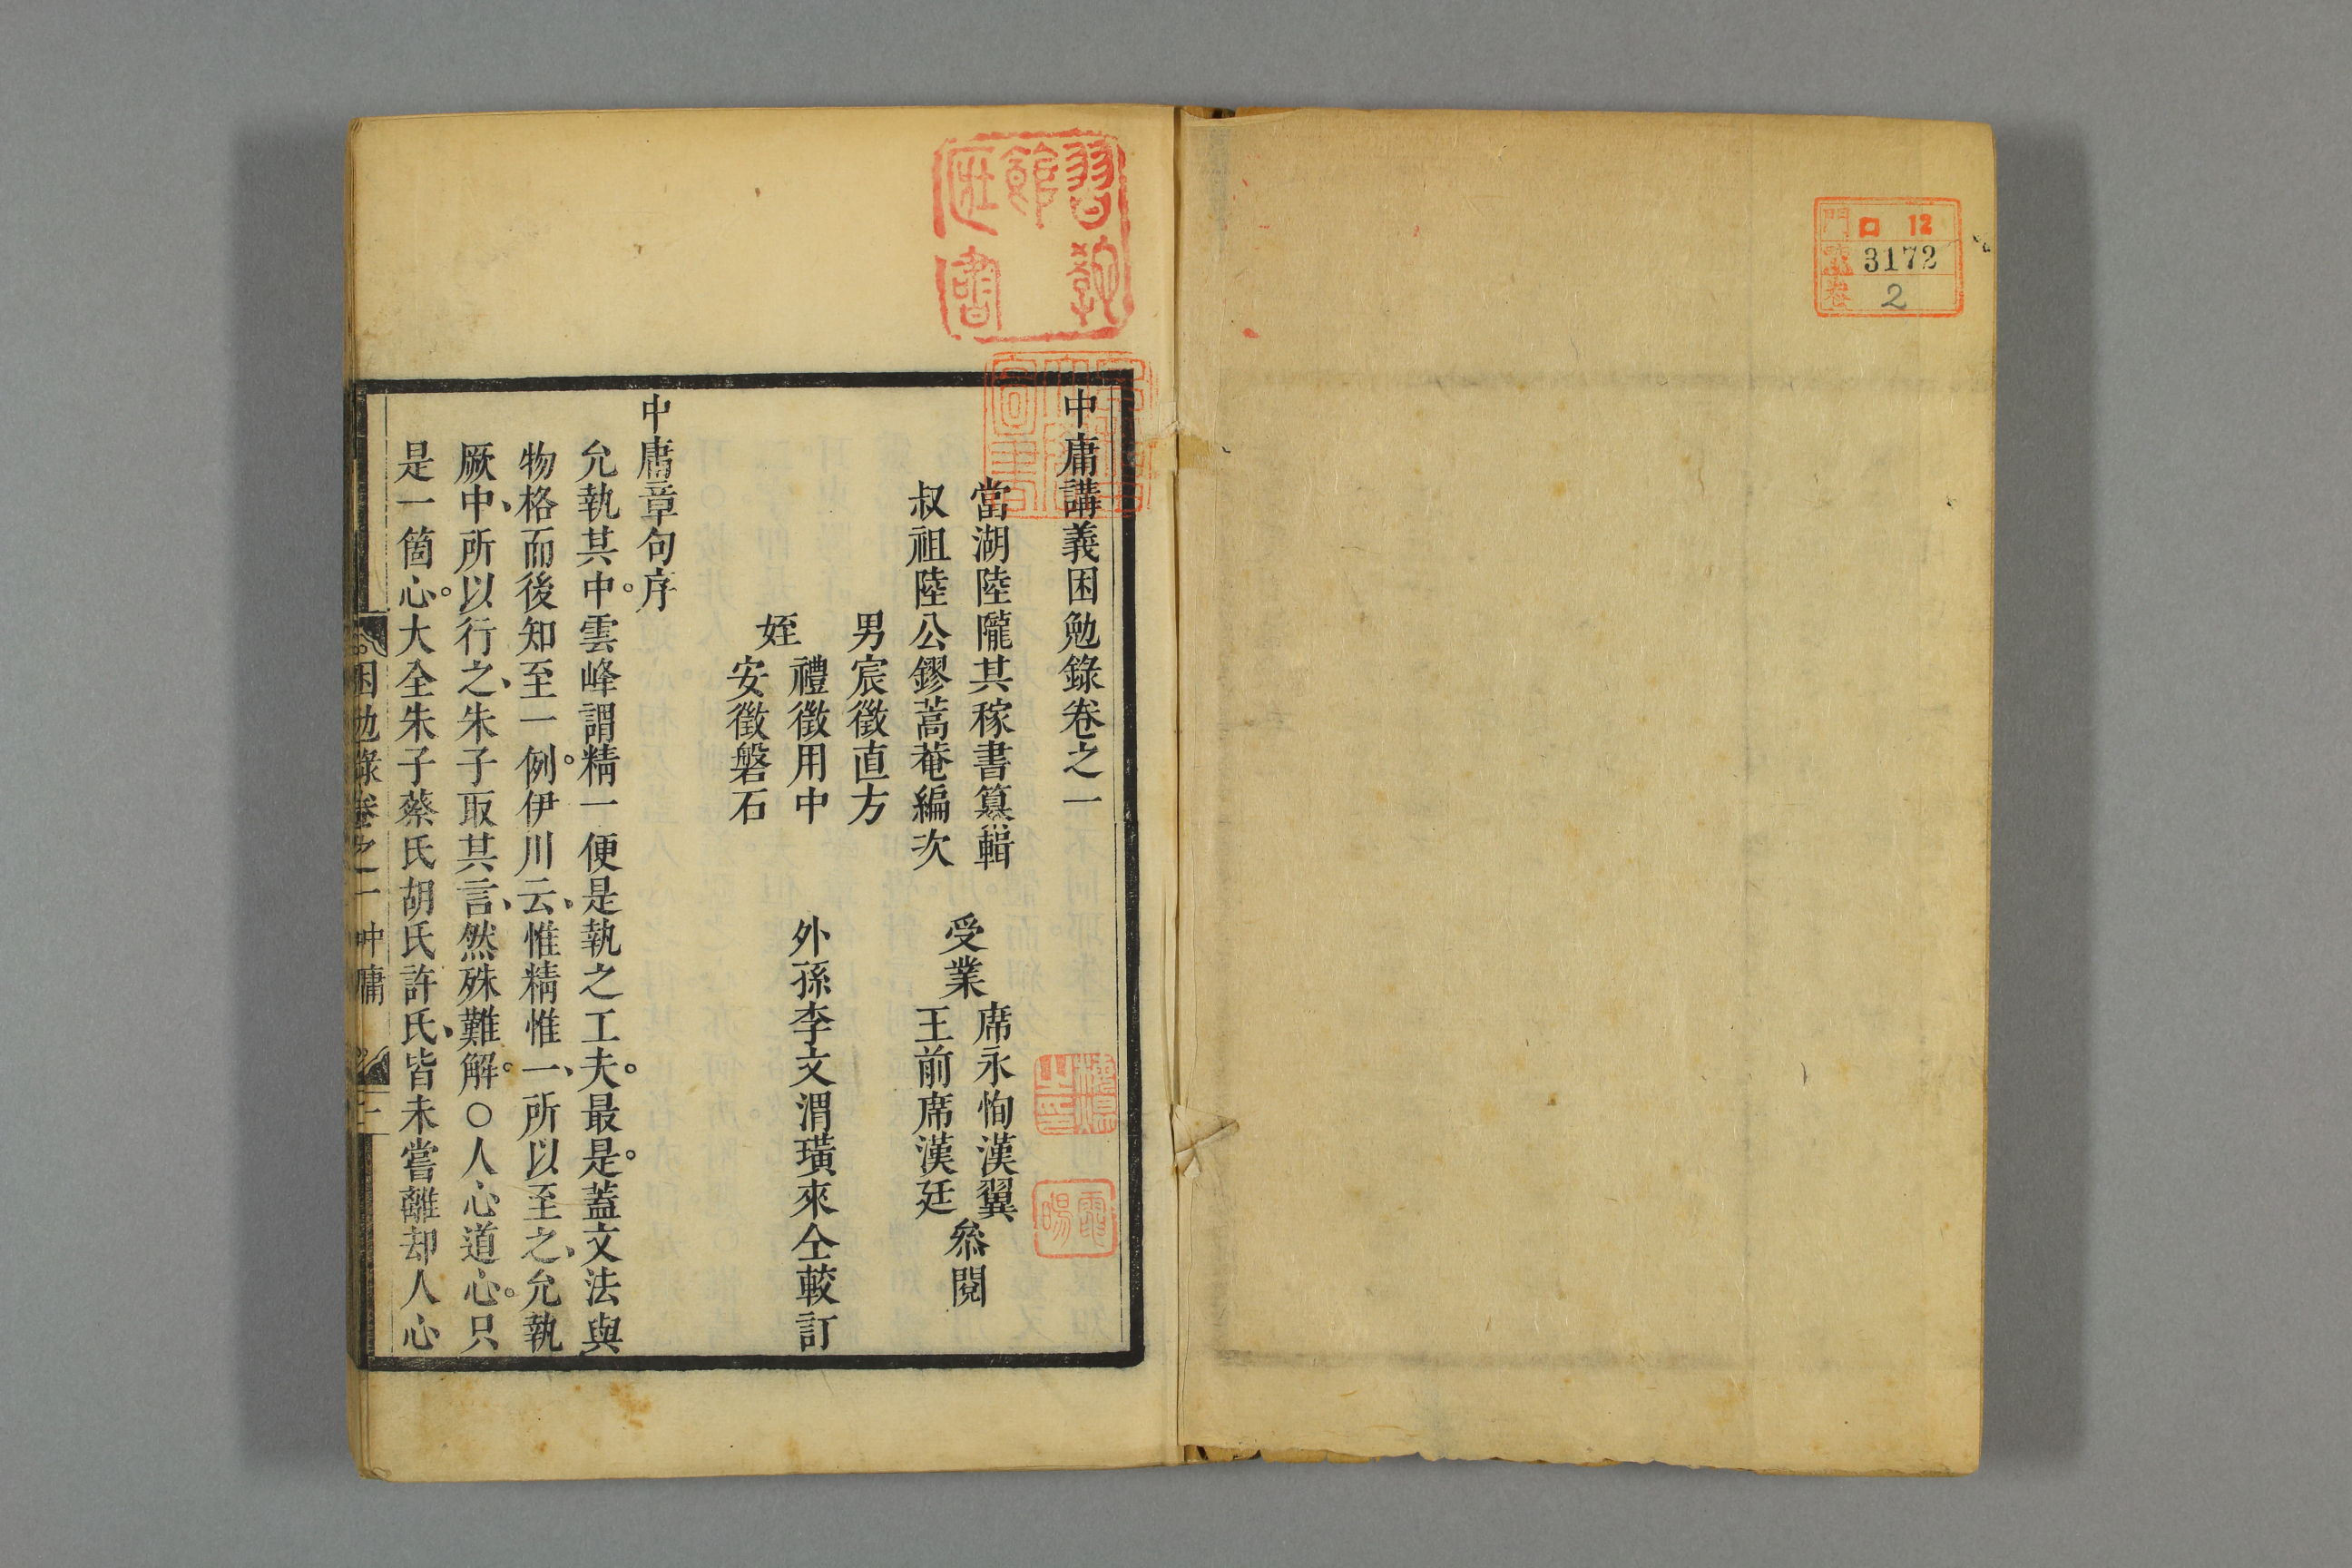 門 口 12
號 3172
卷 2
習教館匠書
中庸講義困勉錄卷之一
當湖陸隴其稼書篹輯
叔祖陸公鏐蒿菴編次
受業
席永恂漢翼
王前席漢廷
叅閱
男宸徵直方
姪
禮徵用中
安徵磐石
外孫李文渭璜來仝較訂
中庸章句序
允執其中。雲峰謂精一便是執之工夫。最是。蓋文法與
物格而後知至一例。伊川云、惟精惟一、所以至之、允執
厥中、所以行之、朱子取其言、然殊難解。○人心道心。只
是一箇心。大全朱子蔡氏胡氏許氏、皆未嘗離却人心
困勉錄卷之一 中庸 一